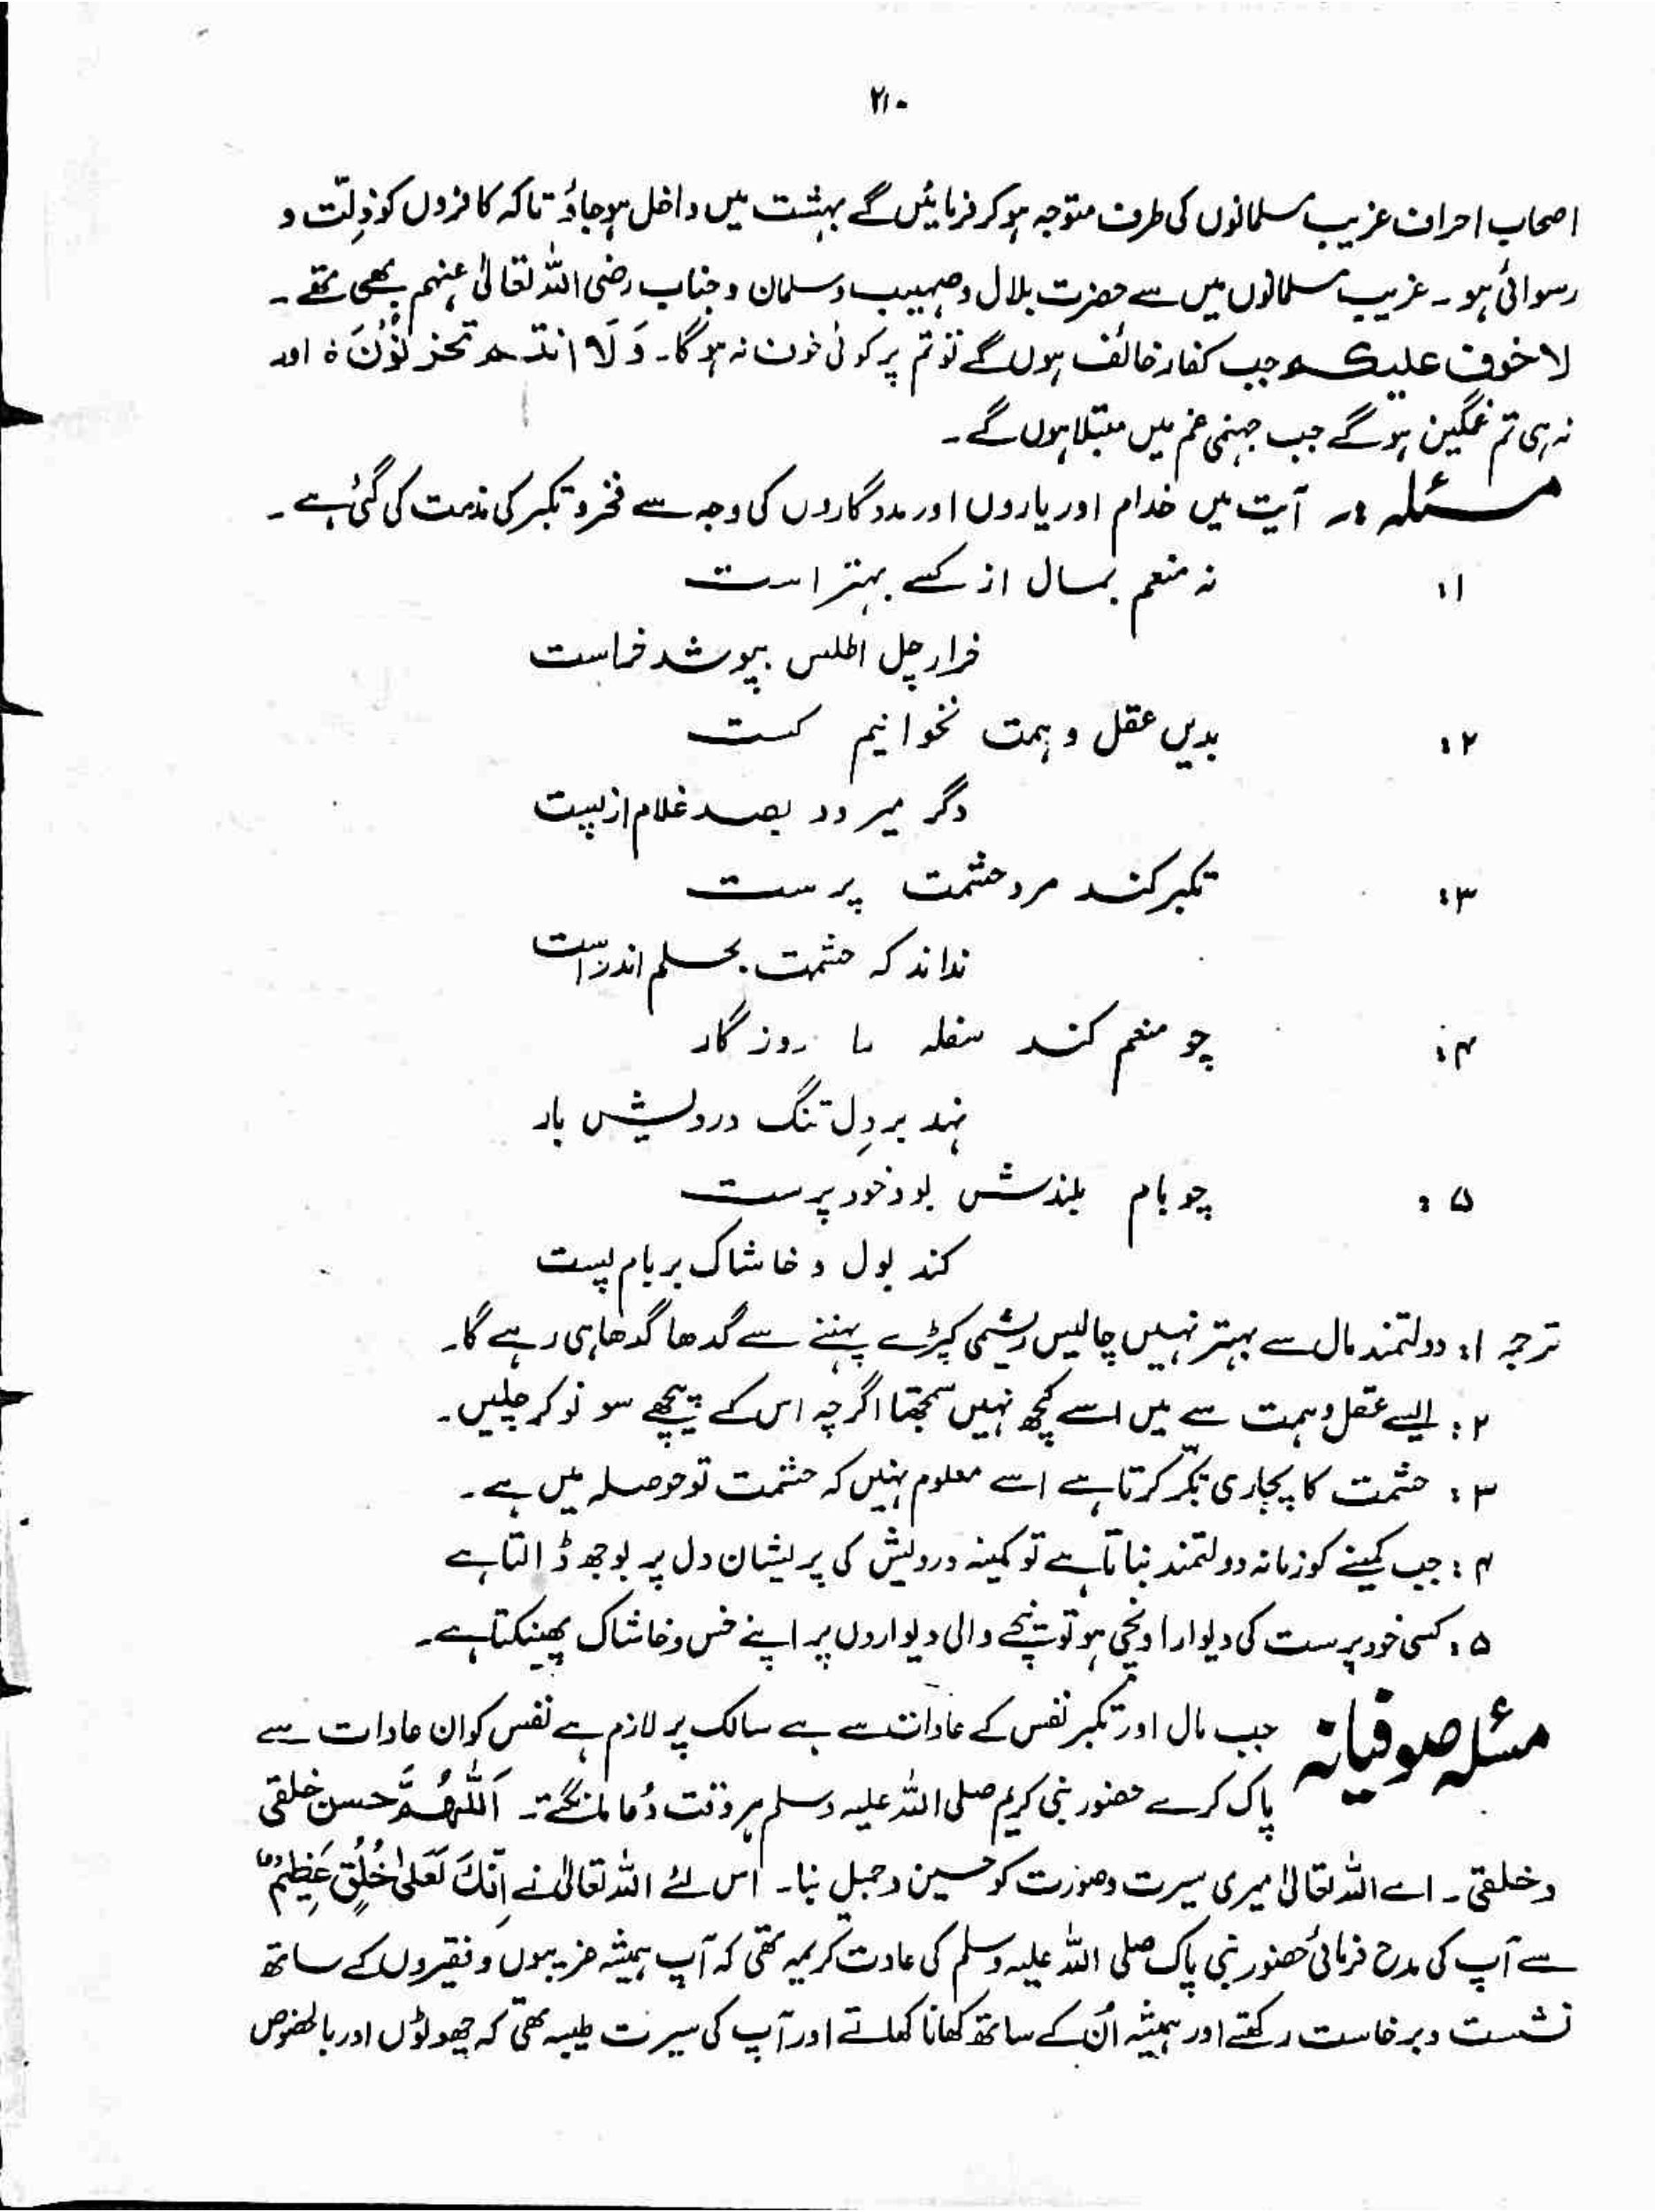 ۲۱۰
اصحاب احراف غریب مسلمانوں کی طرف متوجہ ہو کر فرمائیں گے بہشت میں داخل ہو جاؤ تاکہ کافروں کو ذِلّت و
رسوائی ہو ۔ غریب مسلمانوں میں سے حضرت بلال و صہیب و سلمان و جناب رضی اللہ تعالیٰ عنہم بھی تھے ۔
لا خوف علیکم جب کفار خائف ہوں گے تو تم پر کوئی خوف نہ ہو گا۔ وَ لَا انتم تحزنُوْنَ ہ اور
نہ ہی تم غمگین ہو گے جب جہنمی غم میں مبتلا ہوں گے ۔
مسئلہ :۔ آیت میں خدام اور یاروں اور مددگاروں کی وجہ سے فخر و تکبر کی مذمت کی گئی ہے ۔
۱: نہ منعم بمال از کسے بہتر است
خرار جل اطلس بپوشد خراست
۲: بدیں عقل و ہمت نخوانیم کست
دگر میرود بصد غلام از پست
۳: تکبر کند مرد حشمت پرست
نداند کہ حشمت بحلم اندر است
۴: چو منعم کند سفلہ را روزگار
نہد بر دِل تنگ درویش بار
۵: چو بام بلندش بود خود پرست
کند بول و خاشاک بر بام پست
ترجمہ ۱: دولتمند مال سے بہتر نہیں چالیس ریشمی کپڑے پہننے سے گدھا گدھا ہی رہے گا۔
۲: ایسے عقل و ہمت سے میں اسے کچھ نہیں سمجھتا اگرچہ اس کے پیچھے سو نوکر چلیں۔
۳: حشمت کا پجاری تکبّر کرتا ہے اسے معلوم نہیں کہ حشمت تو حوصلہ میں ہے ۔
۴: جب کمینے کو زمانہ دولتمند بناتا ہے تو کمینہ درویش کی پریشان دل پر بوجھ ڈالتا ہے
۵: کسی خود پرست کی دیوار اونچی ہو تو نیچے والی دیواروں پر اپنے خس و خاشاک پھینکتا ہے۔
مسئلہ صوفیانہ جب مال اور تکبر نفس کے عادات سے ہے سالک پر لازم ہے نفس کو ان عادات سے
پاک کرے حضور نبی کریم صلی اللہ علیہ وسلم ہر وقت دُعا مانگتے۔ اَللّٰھُمَّ حسن خلقی
و خلقی ۔ اے اللہ تعالیٰ میری سیرت و صورت کو حسین و جمیل بنا۔ اس لئے اللہ تعالیٰ نے اِنَّکَ لَعَلیٰ خُلُقٍ عَظِیْمٍ
سے آپ کی مدح فرمائی حضور نبی پاک صلی اللہ علیہ وسلم کی عادت کریمہ تھی کہ آپ ہمیشہ غریبوں و فقیروں کے ساتھ
نشست و برخاست رکھتے اور ہمیشہ اُن کے ساتھ کھانا کھاتے اور آپ کی سیرت طیبہ تھی کہ چھوٹوں اور بالخصوص